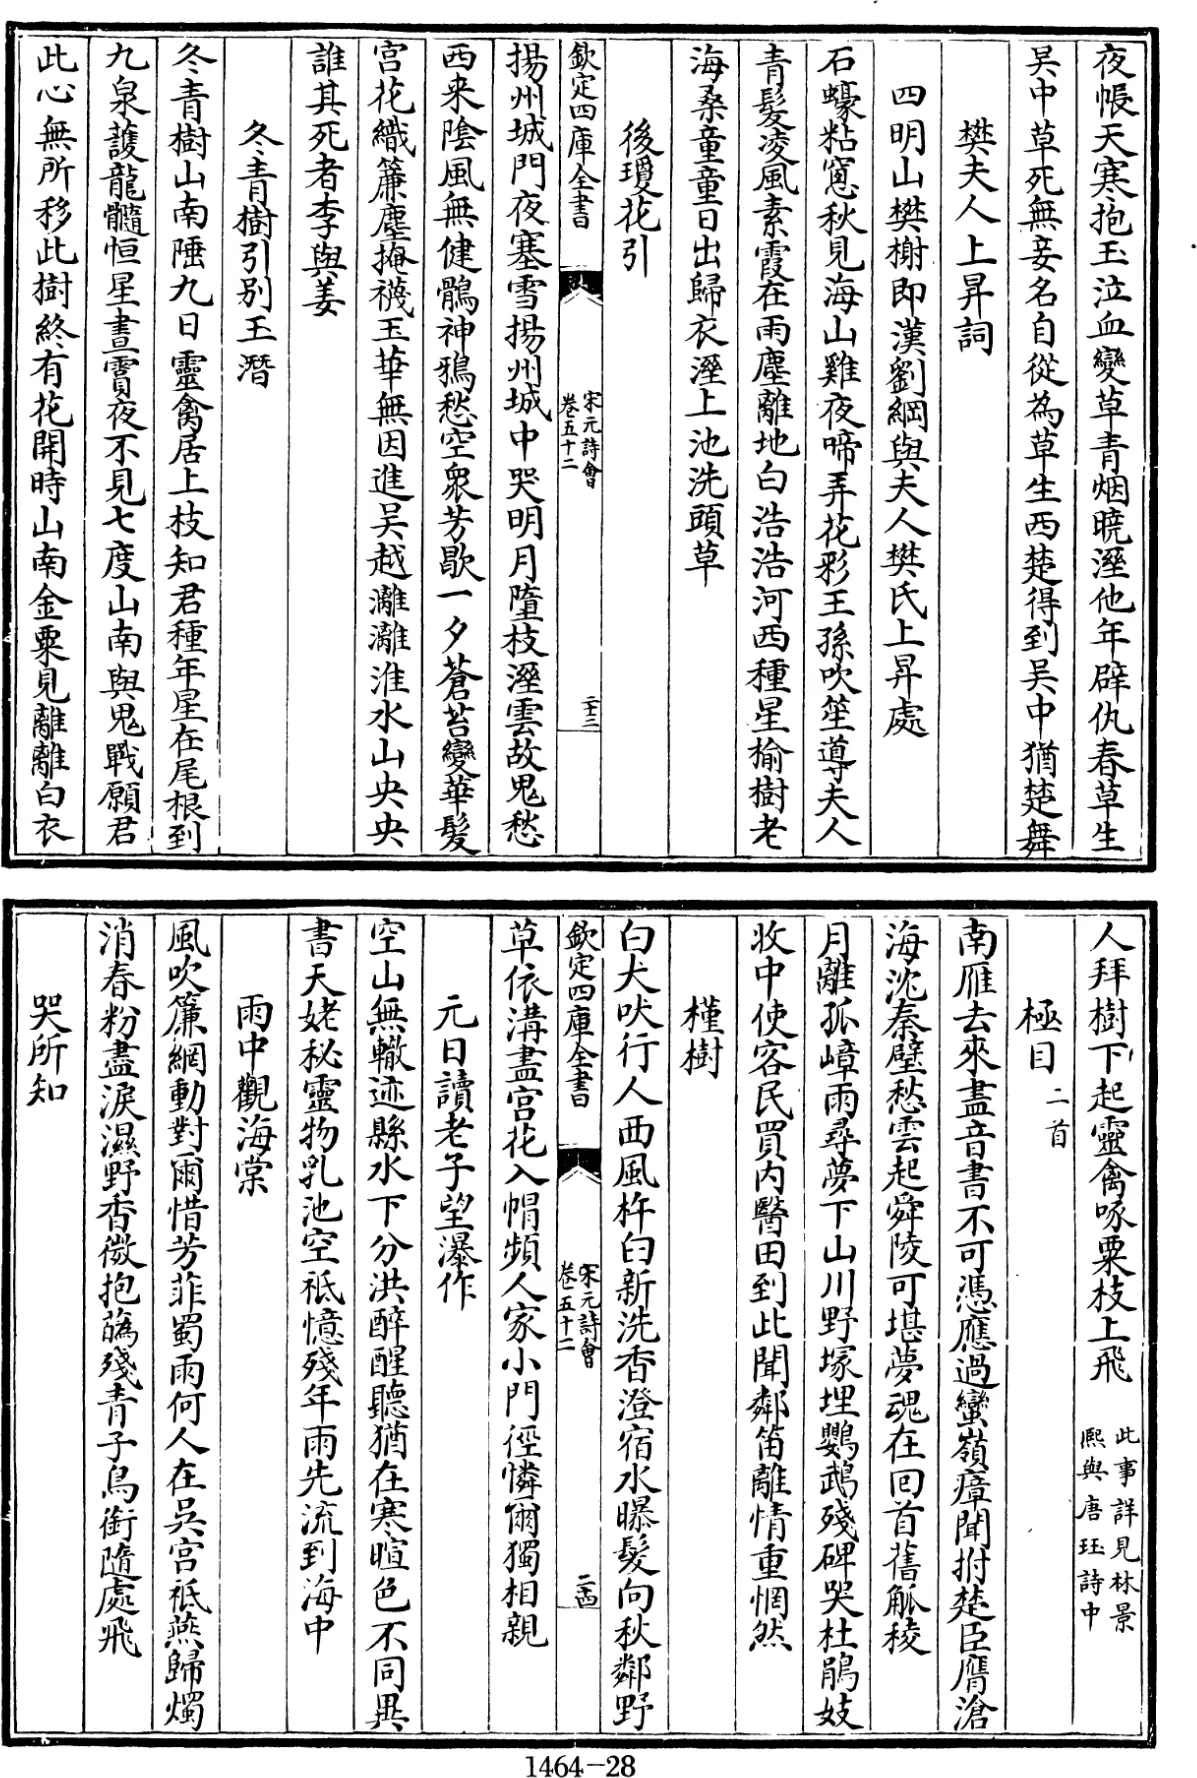 夜帳天寒抱玉泣血變草青烟曉溼他年辟仇春草生
吳中草死無妾名自從為草生西楚得到吳中猶楚舞
樊夫人上昇詞
四明山樊榭即漢劉綱與夫人樊氏上昇處
石蠔粘窻秋見海山雞夜啼弄花彩王孫吹笙導夫人
青髮凌風素霞在雨塵離地白浩浩河西種星榆樹老
海桑童童日出歸衣溼上池洗頭草
後瓊花引
欽定四庫全書
宋元詩會
卷五十二
二十三
揚州城門夜塞雪揚州城中哭明月墮枝溼雲故鬼愁
西来陰風無健鶻神鴉愁空衆芳歇一夕蒼苔變華髮
宮花織簾塵掩襪玉華無因進吴越灕灕淮水山央央
誰其死者李與姜
冬青樹引别玉潛
冬青樹山南陲九日靈禽居上枝知君種年星在尾根到
九泉護龍髓恒星晝霣夜不見七度山南與鬼戰願君
此心無所移此樹終有花開時山南金粟見離離白衣
人拜樹下起靈禽啄粟枝上飛
此事詳見林景
熙與唐珏詩中
極目
二首
南雁去來盡音書不可憑應過蠻嶺瘴聞拊楚臣膺滄
海沈秦璧愁雲起舜陵可堪夢魂在回首舊觚稜
月離孤嶂雨尋夢下山川野塚埋鸚鵡殘碑哭杜鵑妓
收中使客民買内醫田到此聞鄰笛離情重惘然
槿樹
白犬吠行人西風杵臼新洗香澄宿水曝髮向秋鄰野
欽定四庫全書
宋元詩會
卷五十二
二十四
草依溝盡宫花入帽頻人家小門徑憐爾獨相親
元日讀老子望瀑作
空山無轍迹縣水下分洪醉醒聽猶在寒暄色不同異
書天姥秘靈物乳池空祗憶殘年雨先流到海中
雨中觀海棠
風吹簾網動對爾惜芳菲蜀雨何人在吳宫祗燕歸燭
消春粉盡淚濕野香微抱蘤殘青子鳥銜隨處飛
哭所知
1464-28